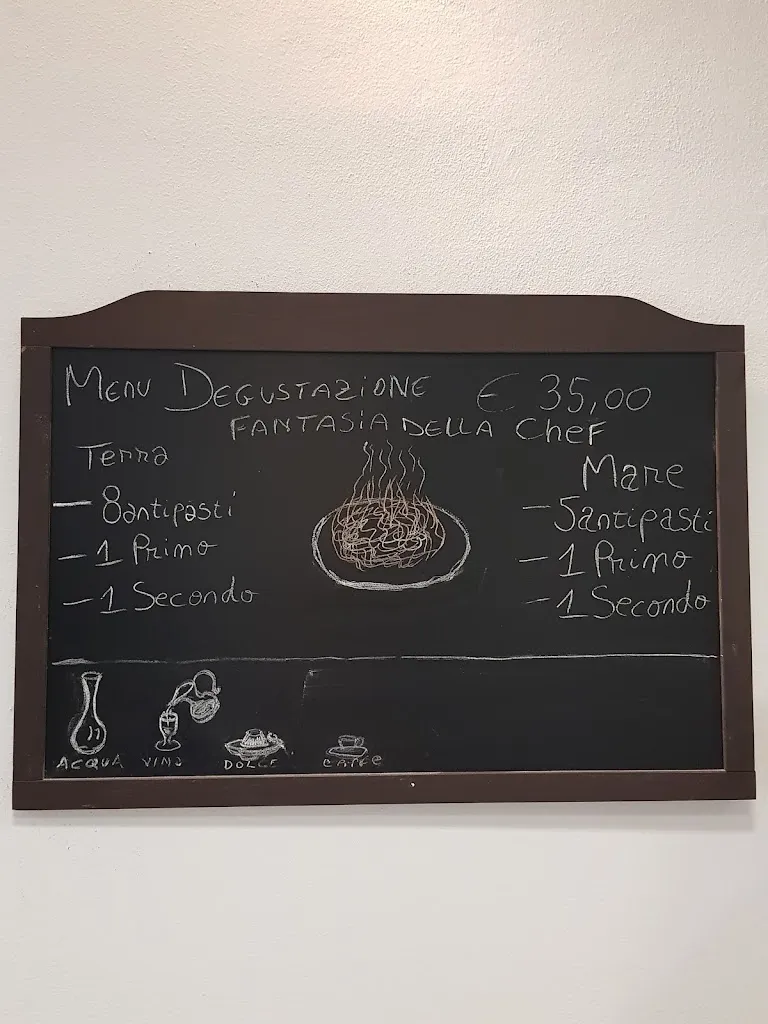 MENU DEGUSTAZIONE € 35,00
FANTASIA DELLA CHEF
Terra
— 8 antipasti
— 1 Primo
— 1 Secondo
Mare
— 5 antipasti
— 1 Primo
— 1 Secondo
ACQUA VINO DOLCE CAFFE